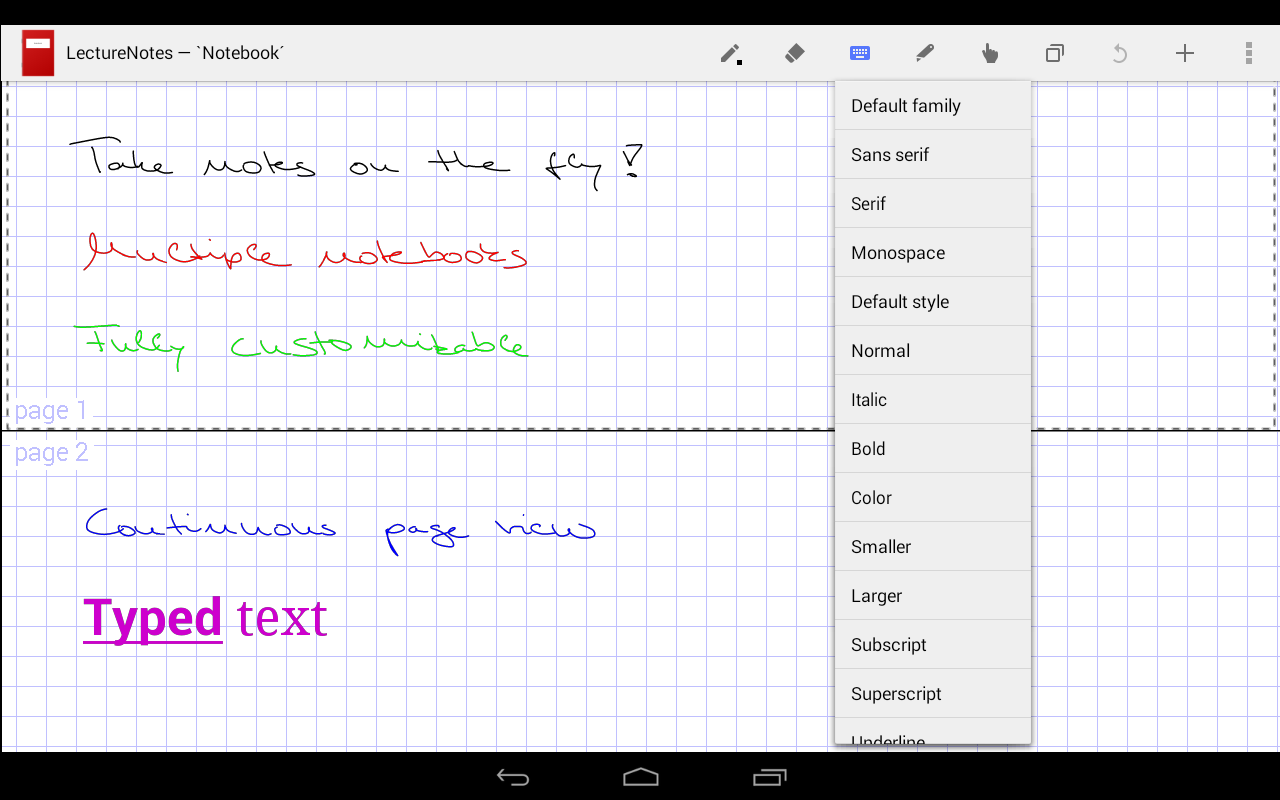 LectureNotes — `Notebook´
Take notes on the fly!
Multiple notebooks
Fully customizable
page 1
page 2
Continuous page view
Typed text
Default family
Sans serif
Serif
Monospace
Default style
Normal
Italic
Bold
Color
Smaller
Larger
Subscript
Superscript
Underline